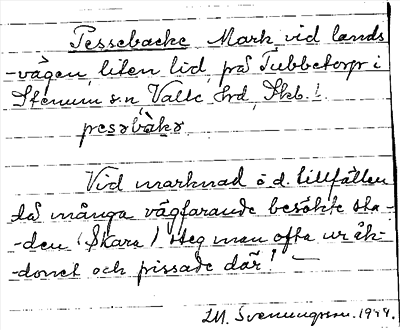 Pessebacke Mark vid lands
-vägen, liten lid, på Tubbetorp i
Stenum s:n, Valle hrd, Skb. l.
pesəbàkə
Vid marknad o. d. tillfällen
då många vägfarande besökte sta-
-den (Skara) steg man ofta ur åk-
-donet och pissade där! —
Svenungsson. 1944.